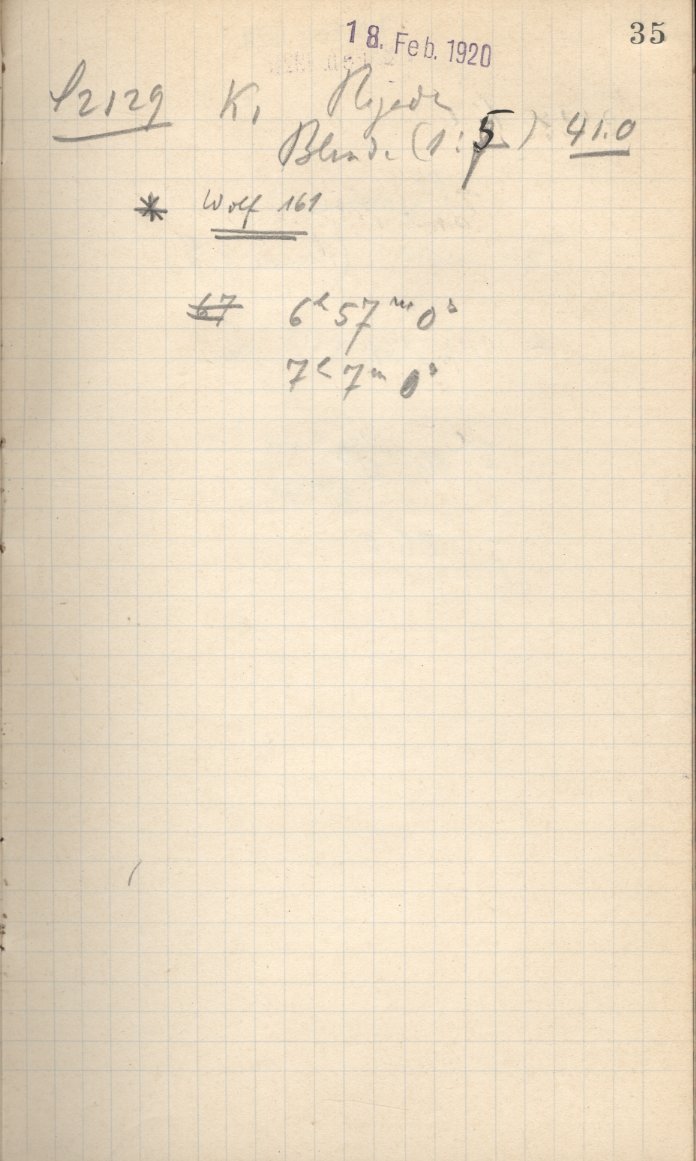 35
18. Feb. 1920
P2129 K1
Blende (1:5) 41.0
* Wolf 161
67 6h 57m 0s
7h 7m 0s